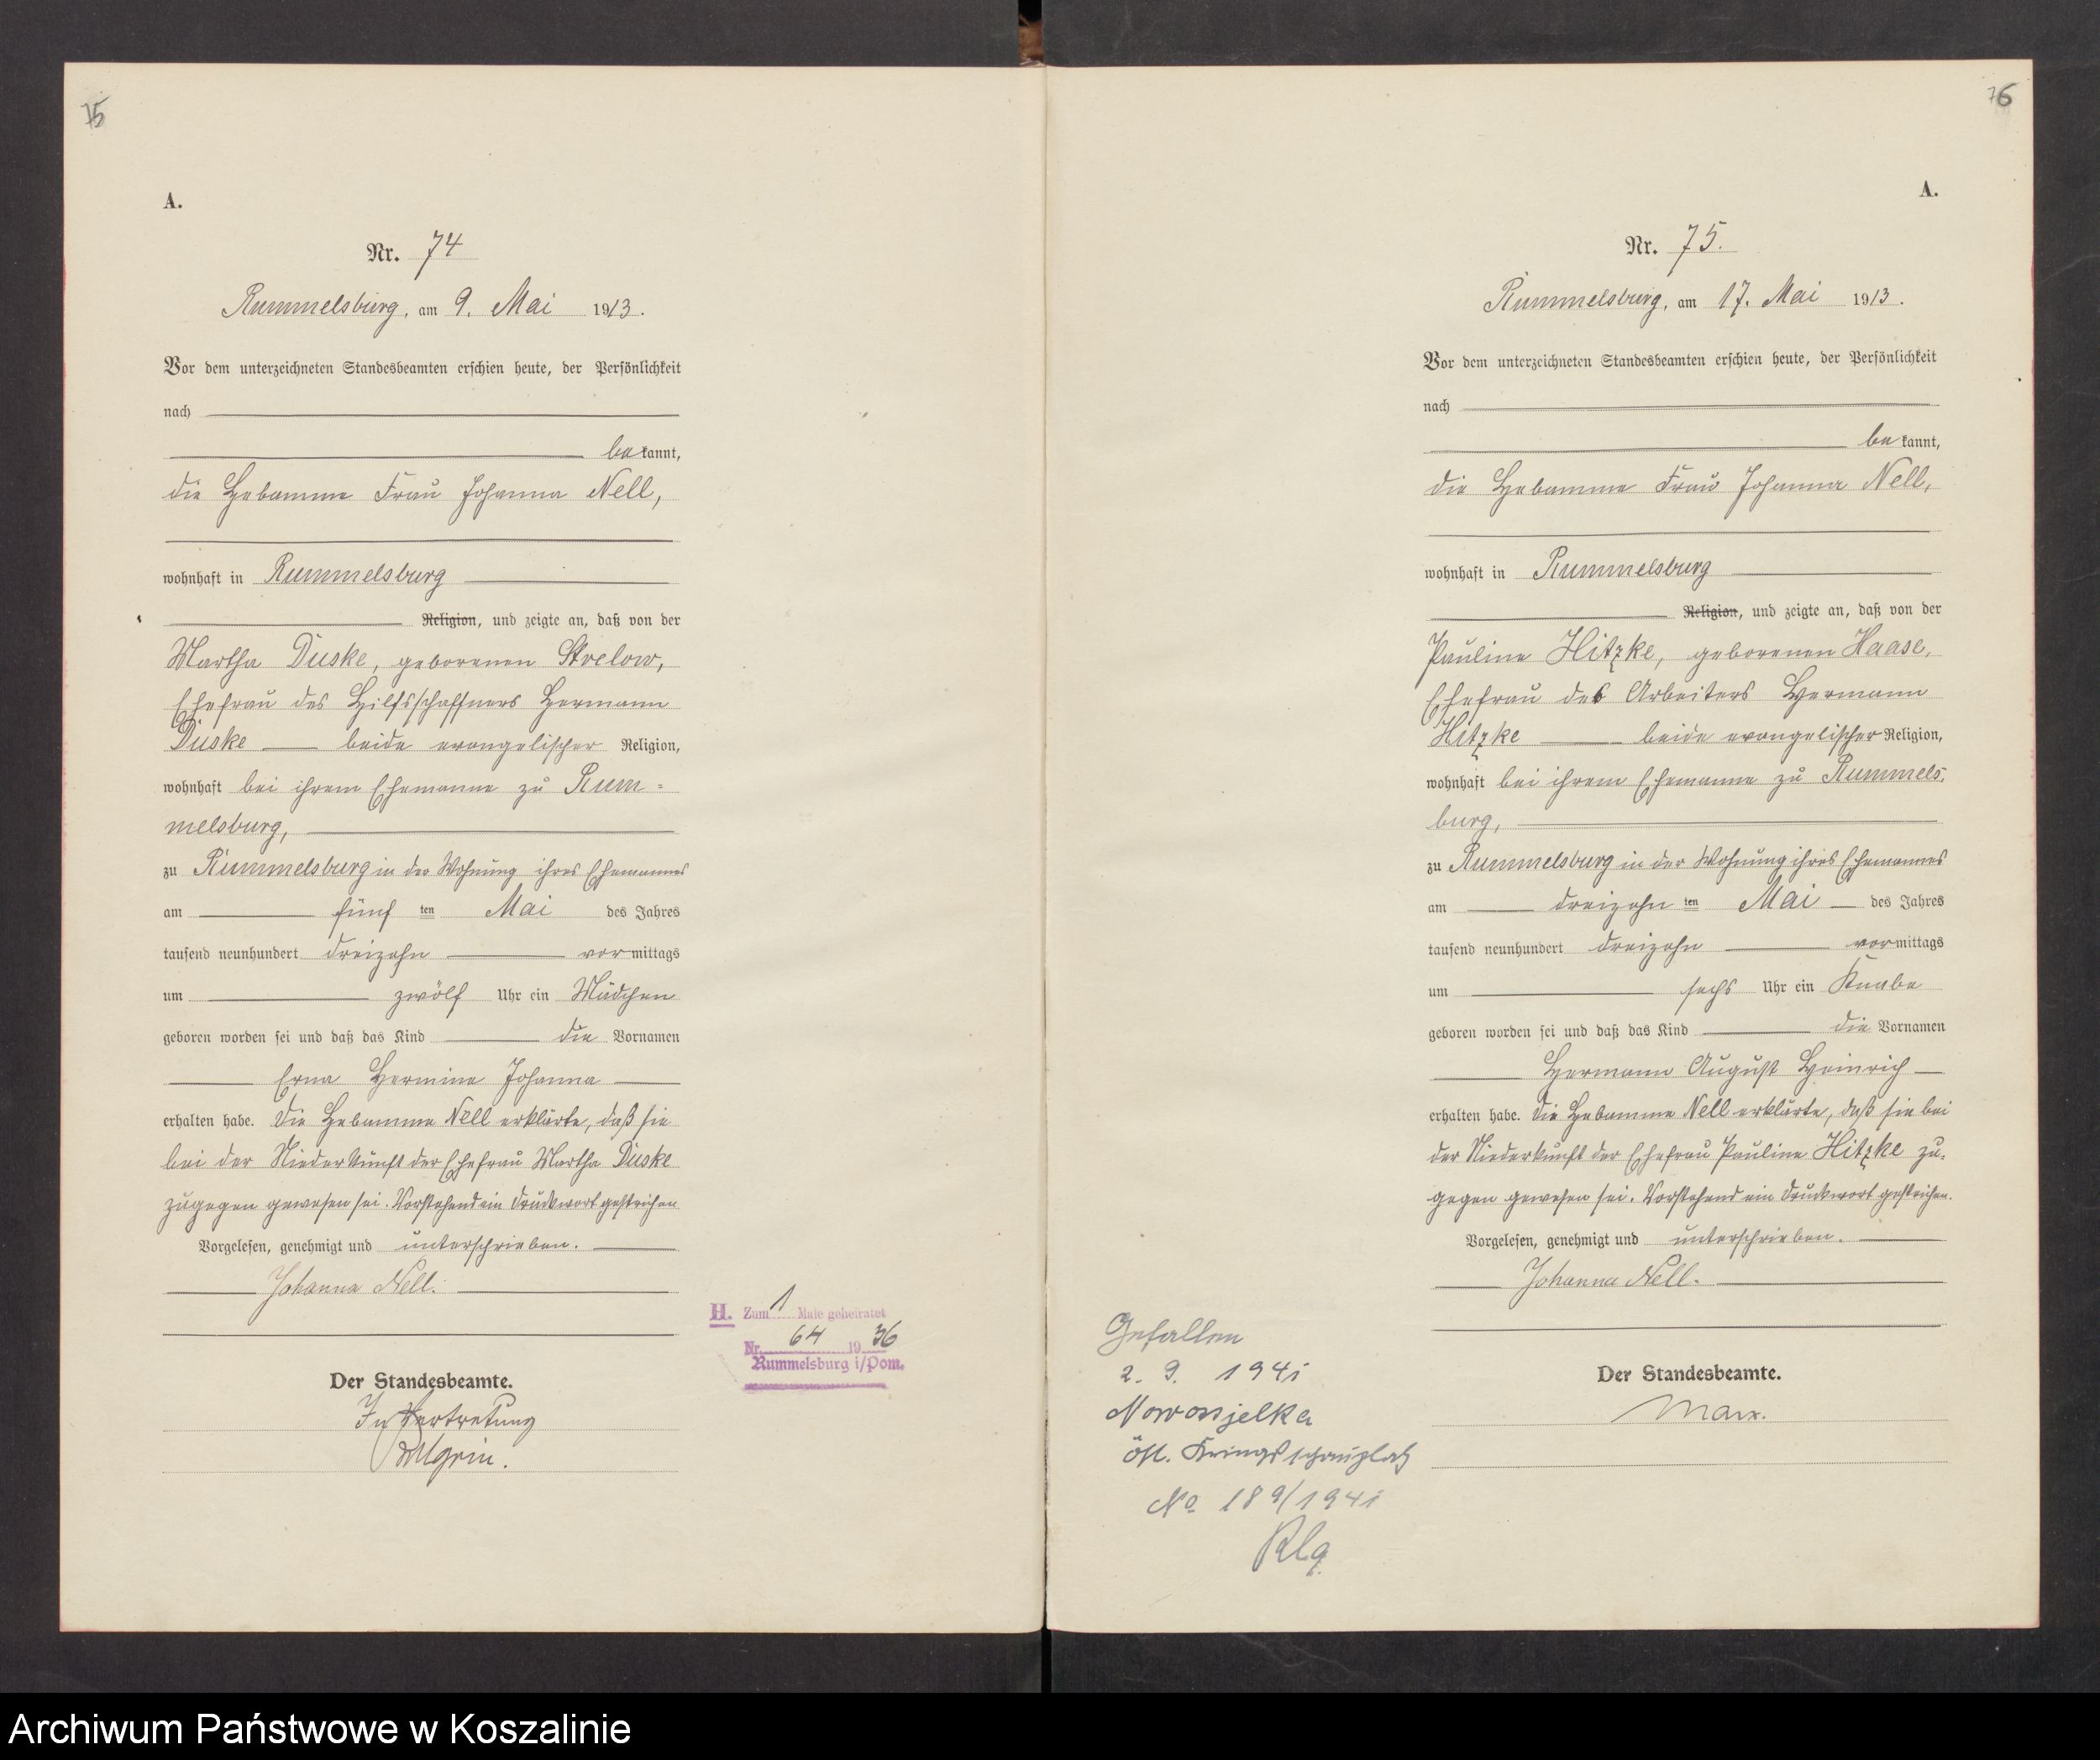 75
A.
Nr. 74
Rummelsburg, am 9. Mai 1913.
Vor dem unterzeichneten Standesbeamten erschien heute, der Persönlichkeit
nach
bekannt,
die Hebamme Frau Johanna Nell,
wohnhaft in Rummelsburg
Religion, und zeigte an, daß von der
Martha Duske, geborenen Strelow,
Ehefrau des Hilfsschaffners Hermann
Duske beide evangelischer Religion,
wohnhaft bei ihrem Ehemanne zu Rum=
melsburg,
zu Rummelsburg in der Wohnung ihres Ehemannes
am fünf ten Mai des Jahres
tausend neunhundert dreizehn vormittags
um zwölf Uhr ein Mädchen
geboren worden sei und daß das Kind die Vornamen
Erna Hermine Johanna
erhalten habe. Die Hebamme Nell erklärte, daß sie
bei der Niederkunft der Ehefrau Martha Duske
zugegen gewesen sei. Vorstehend ein Druckwort gestrichen
Vorgelesen, genehmigt und unterschrieben.
Johanna Nell.
Der Standesbeamte.
In Vertretung
H. Zum 1 Male geheiratet
Nr. 64 1936
Rummelsburg i/Pom.
76
A.
Nr. 75.
Rummelsburg, am 17. Mai 1913.
Vor dem unterzeichneten Standesbeamten erschien heute, der Persönlichkeit
nach
bekannt,
die Hebamme Frau Johanna Nell,
wohnhaft in Rummelsburg
Religion, und zeigte an, daß von der
Pauline Hitzke, geborenen Haase,
Ehefrau des Arbeiters Hermann
Hitzke beide evangelischer Religion,
wohnhaft bei ihrem Ehemanne zu Rummels-
burg,
zu Rummelsburg in der Wohnung ihres Ehemannes
am dreizehn ten Mai des Jahres
tausend neunhundert dreizehn vormittags
um sechs Uhr ein Knabe
geboren worden sei und daß das Kind die Vornamen
Hermann August Heinrich
erhalten habe. Die Hebamme Nell erklärte, daß sie bei
der Niederkunft der Ehefrau Pauline Hitzke zu-
gegen gewesen sei. Vorstehend ein Druckwort gestrichen.
Vorgelesen, genehmigt und unterschrieben.
Johanna Nell.
Der Standesbeamte.
Marx.
Gefallen
2. 9. 1941
Nowossjelka
östl. Kriegsschauplatz
No 189/1941
Archiwum Państwowe w Koszalinie